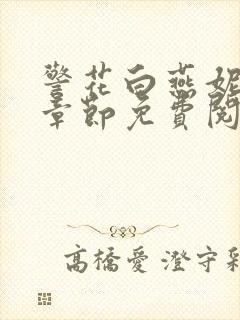 警花白燕妮
章節免費閱
高橋愛 澄守彩